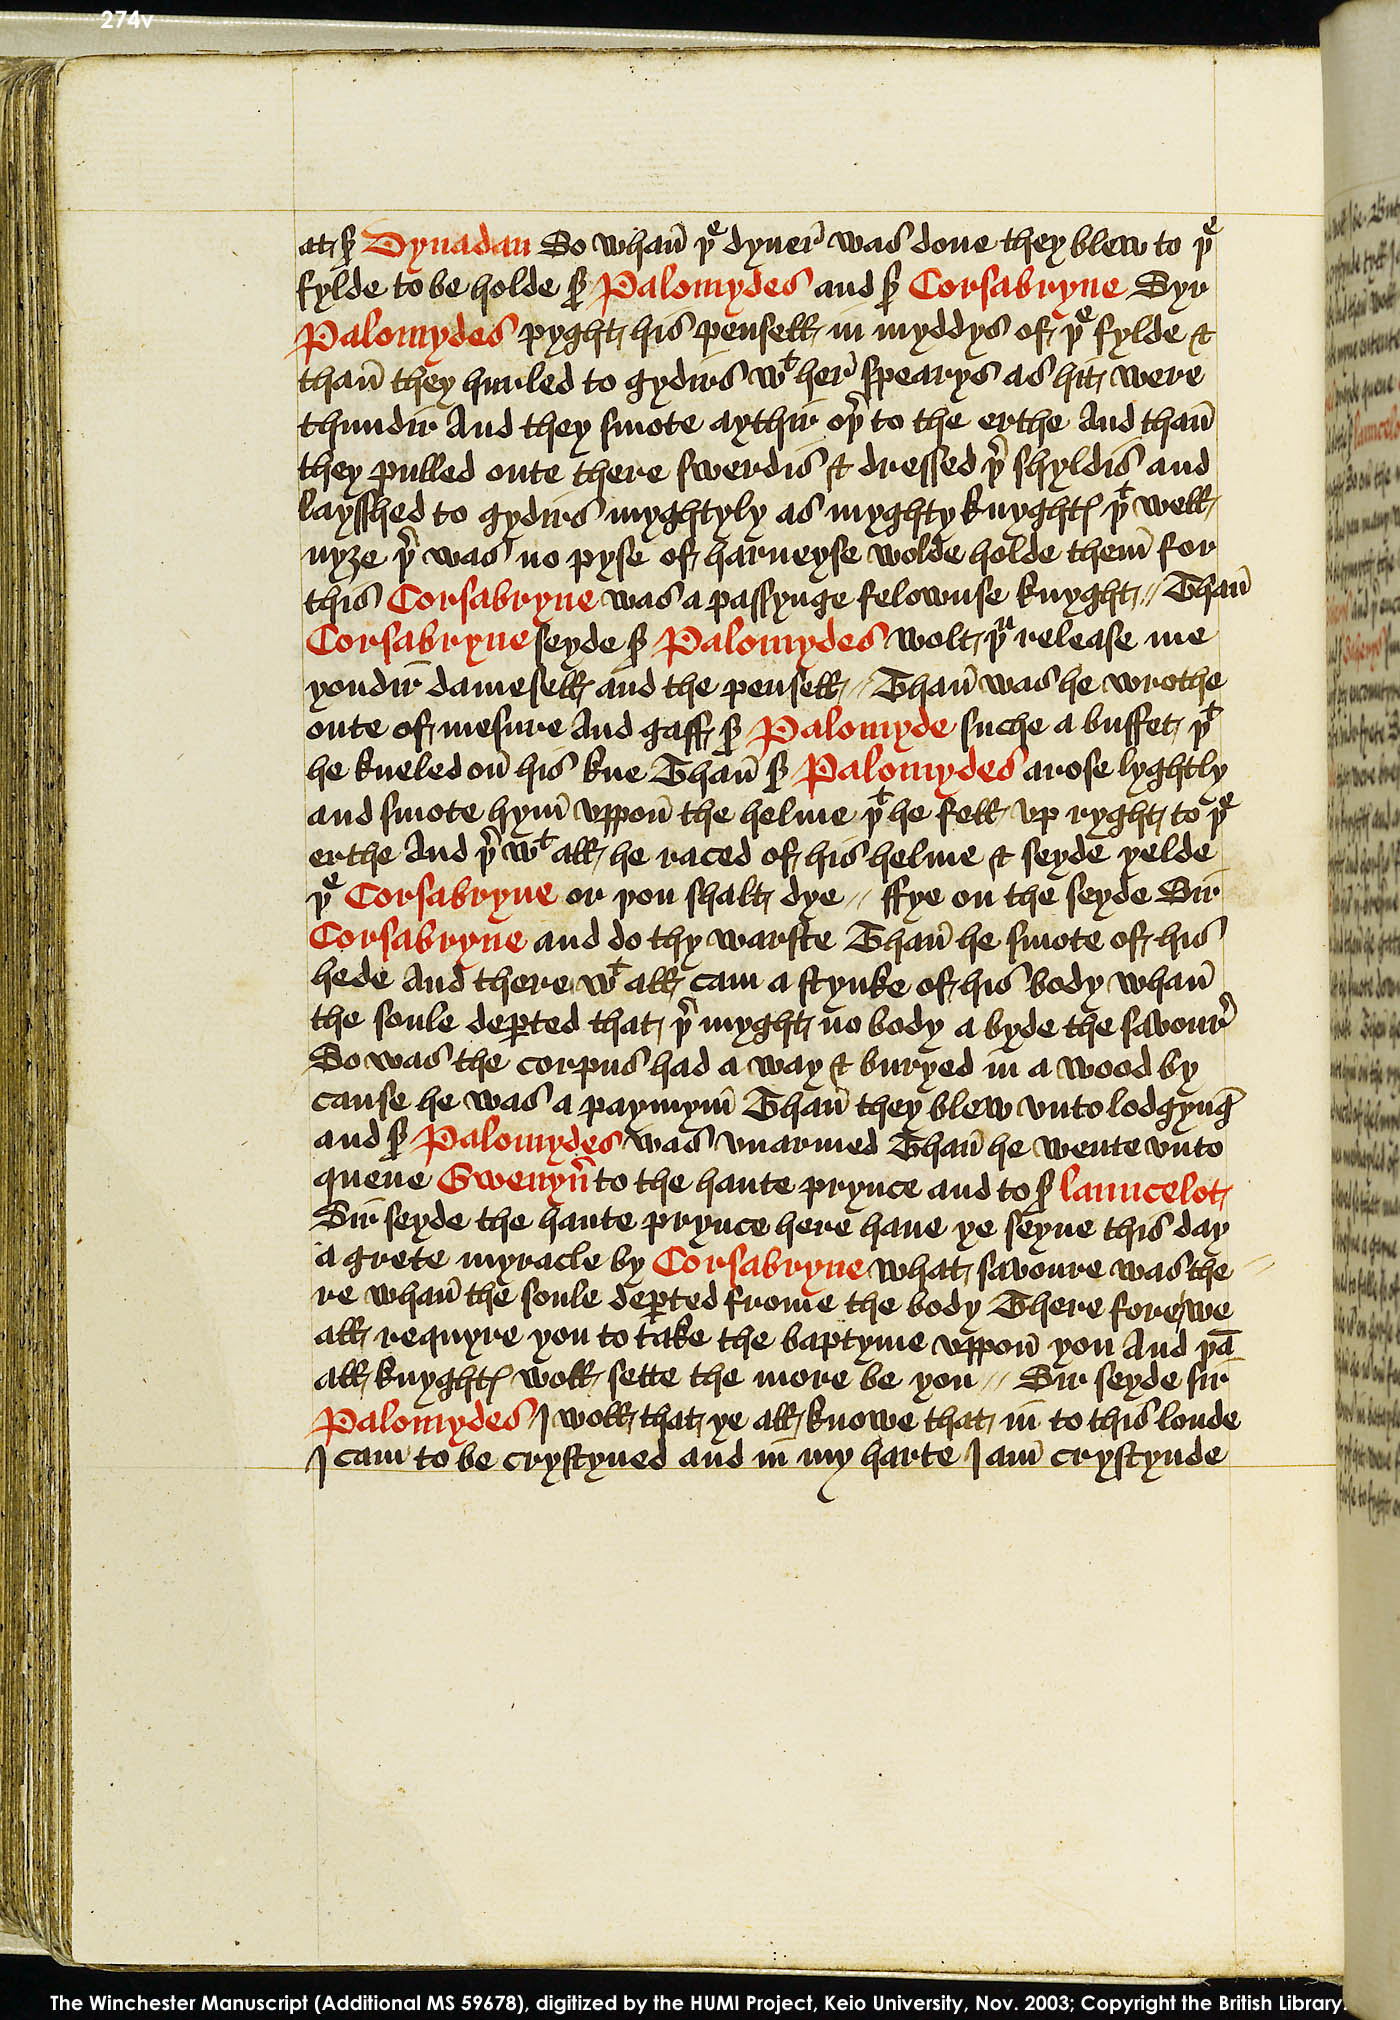 274v
at sͬ Dynadan So whan̄ þͤ dyner̄ was done they blew to þͤ
fylde to be holde sͬ Palomydes and sͬ Corsabryne Syr
Palomydes pyght his pensell in myddys of þͤ fylde &
than̄ they hurled to gydirs wͭ her̄ spearys as hit were
thundir And they smote aythir oþͬ to the erthe And than̄
they pulled oute there swerdis & dressed þͬ shyldis and
laysshed to gydirs myghtyly as myghty knyghtꝭ þͭ well
nyze þͬ was no pyse of harneyse wolde holde them̄ for
this Corsabryne was a passynge felownse knyght // Than̄
Corsabryne seyde sͬ Palomydes wolt þͧ release me
yondir̄ damesell and the pensell // Than̄ was he wrothe
oute of mesure And gaff sͬ Palomyde suche a buffet þͭ
he kneled on̄ his kne Than̄ sͬ Palomydes arose lyghtly
and smote hym̄ vppon̄ the helme þͭ he fell vp ryght to þͤ
erthe And þͬ wͭ all he raced of his helme & seyde yelde
þͤ Corsabryne or þou shalt dye // ffye on the seyde Sir
Corsabryne and do thy warste Than̄ he smote of his
hede And there wͭ all cam a stynke of his body whan̄
the soule deꝑted that þͬ myght no body a byde the savour̄
So was the corpus had a way & buryed in a wood by
cause he was a paymym̄ Than̄ they blew vnto lodgynḡ
and sͬ Palomydes was vnarmed Than̄ he wente vnto
quene Gwenyū to the haute prynce and to sͬ launcelot
Sir seyde the haute prynce here haue ye seyne this day
a grete myracle by Corsabryne what savoure was the //
re whan̄ the soule deꝑted frome the body There fore we
all requyre you to take the baptyme vppon̄ you And þā
all knyghtꝭ woll sette the more be you // Sir seyde sir
Palomydes I woll that ye all knowe that in to this londe
I cam to be crystyned and in my harte I am̄ crystynde
The Winchester Manuscript (Additional MS 59678), digitized by the HUMI Project, Keio University, Nov. 2003; Copyright the British Library.